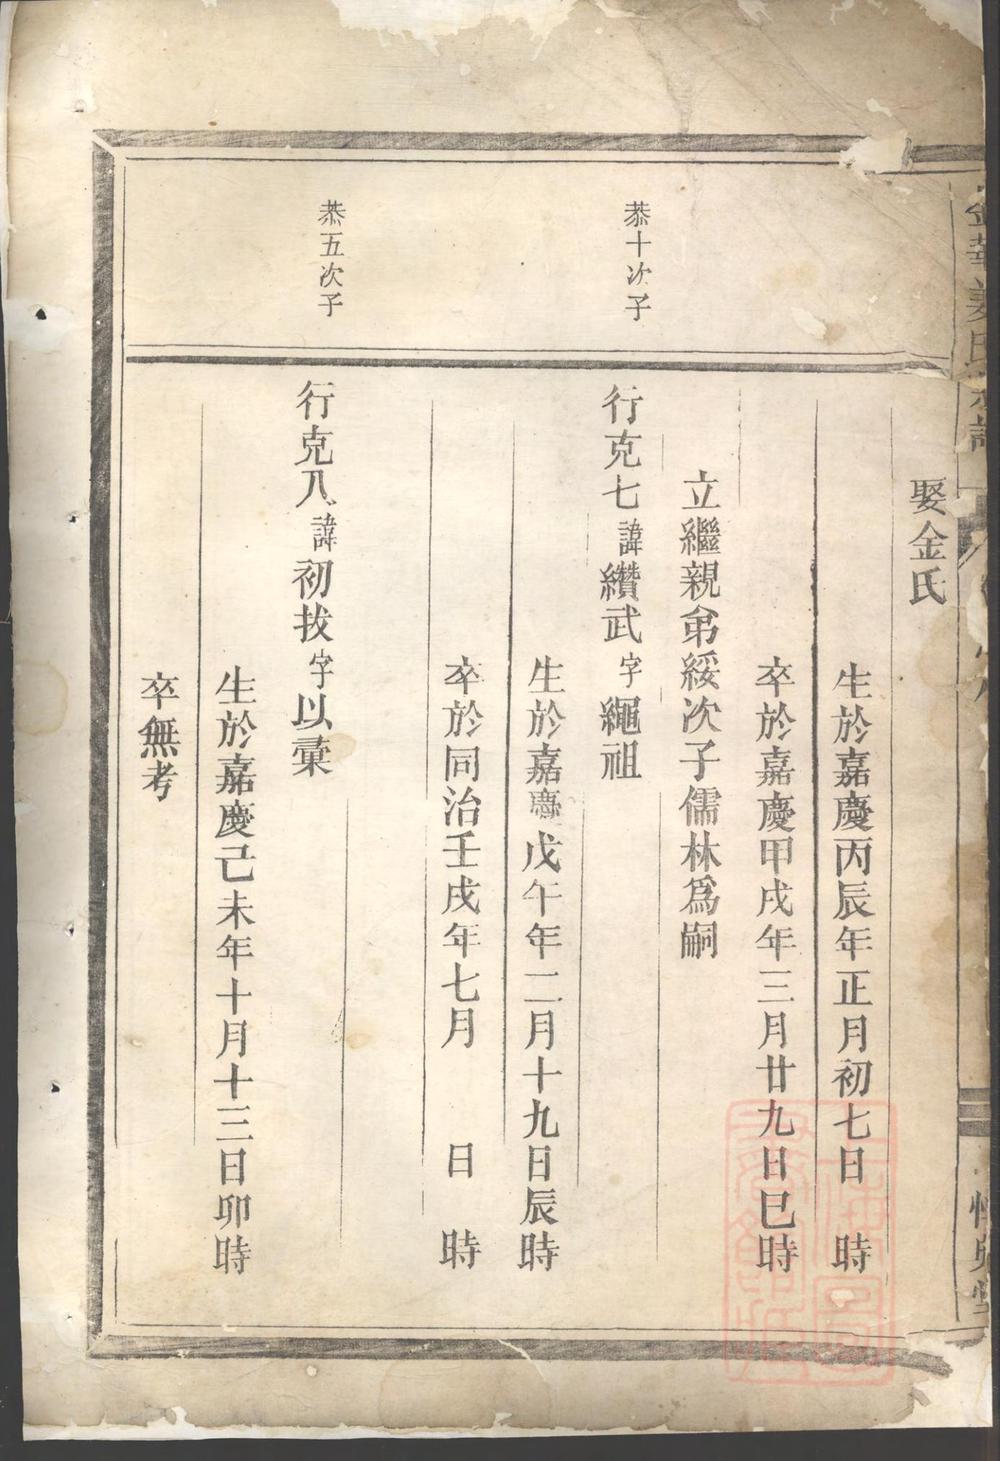 娶金氏
生於嘉慶丙辰年正月初七日　時
卒於嘉慶甲戌年三月廿九日巳時
立繼親弟綏次子儒林爲嗣
恭十次子
行克七諱纘武字繩祖
生於嘉慶戊午年二月十九日辰時
卒於同治壬戌年七月　日　時
恭五次子
行克八諱初拔字以彙
生於嘉慶己未年十月十三日卯時
卒無考